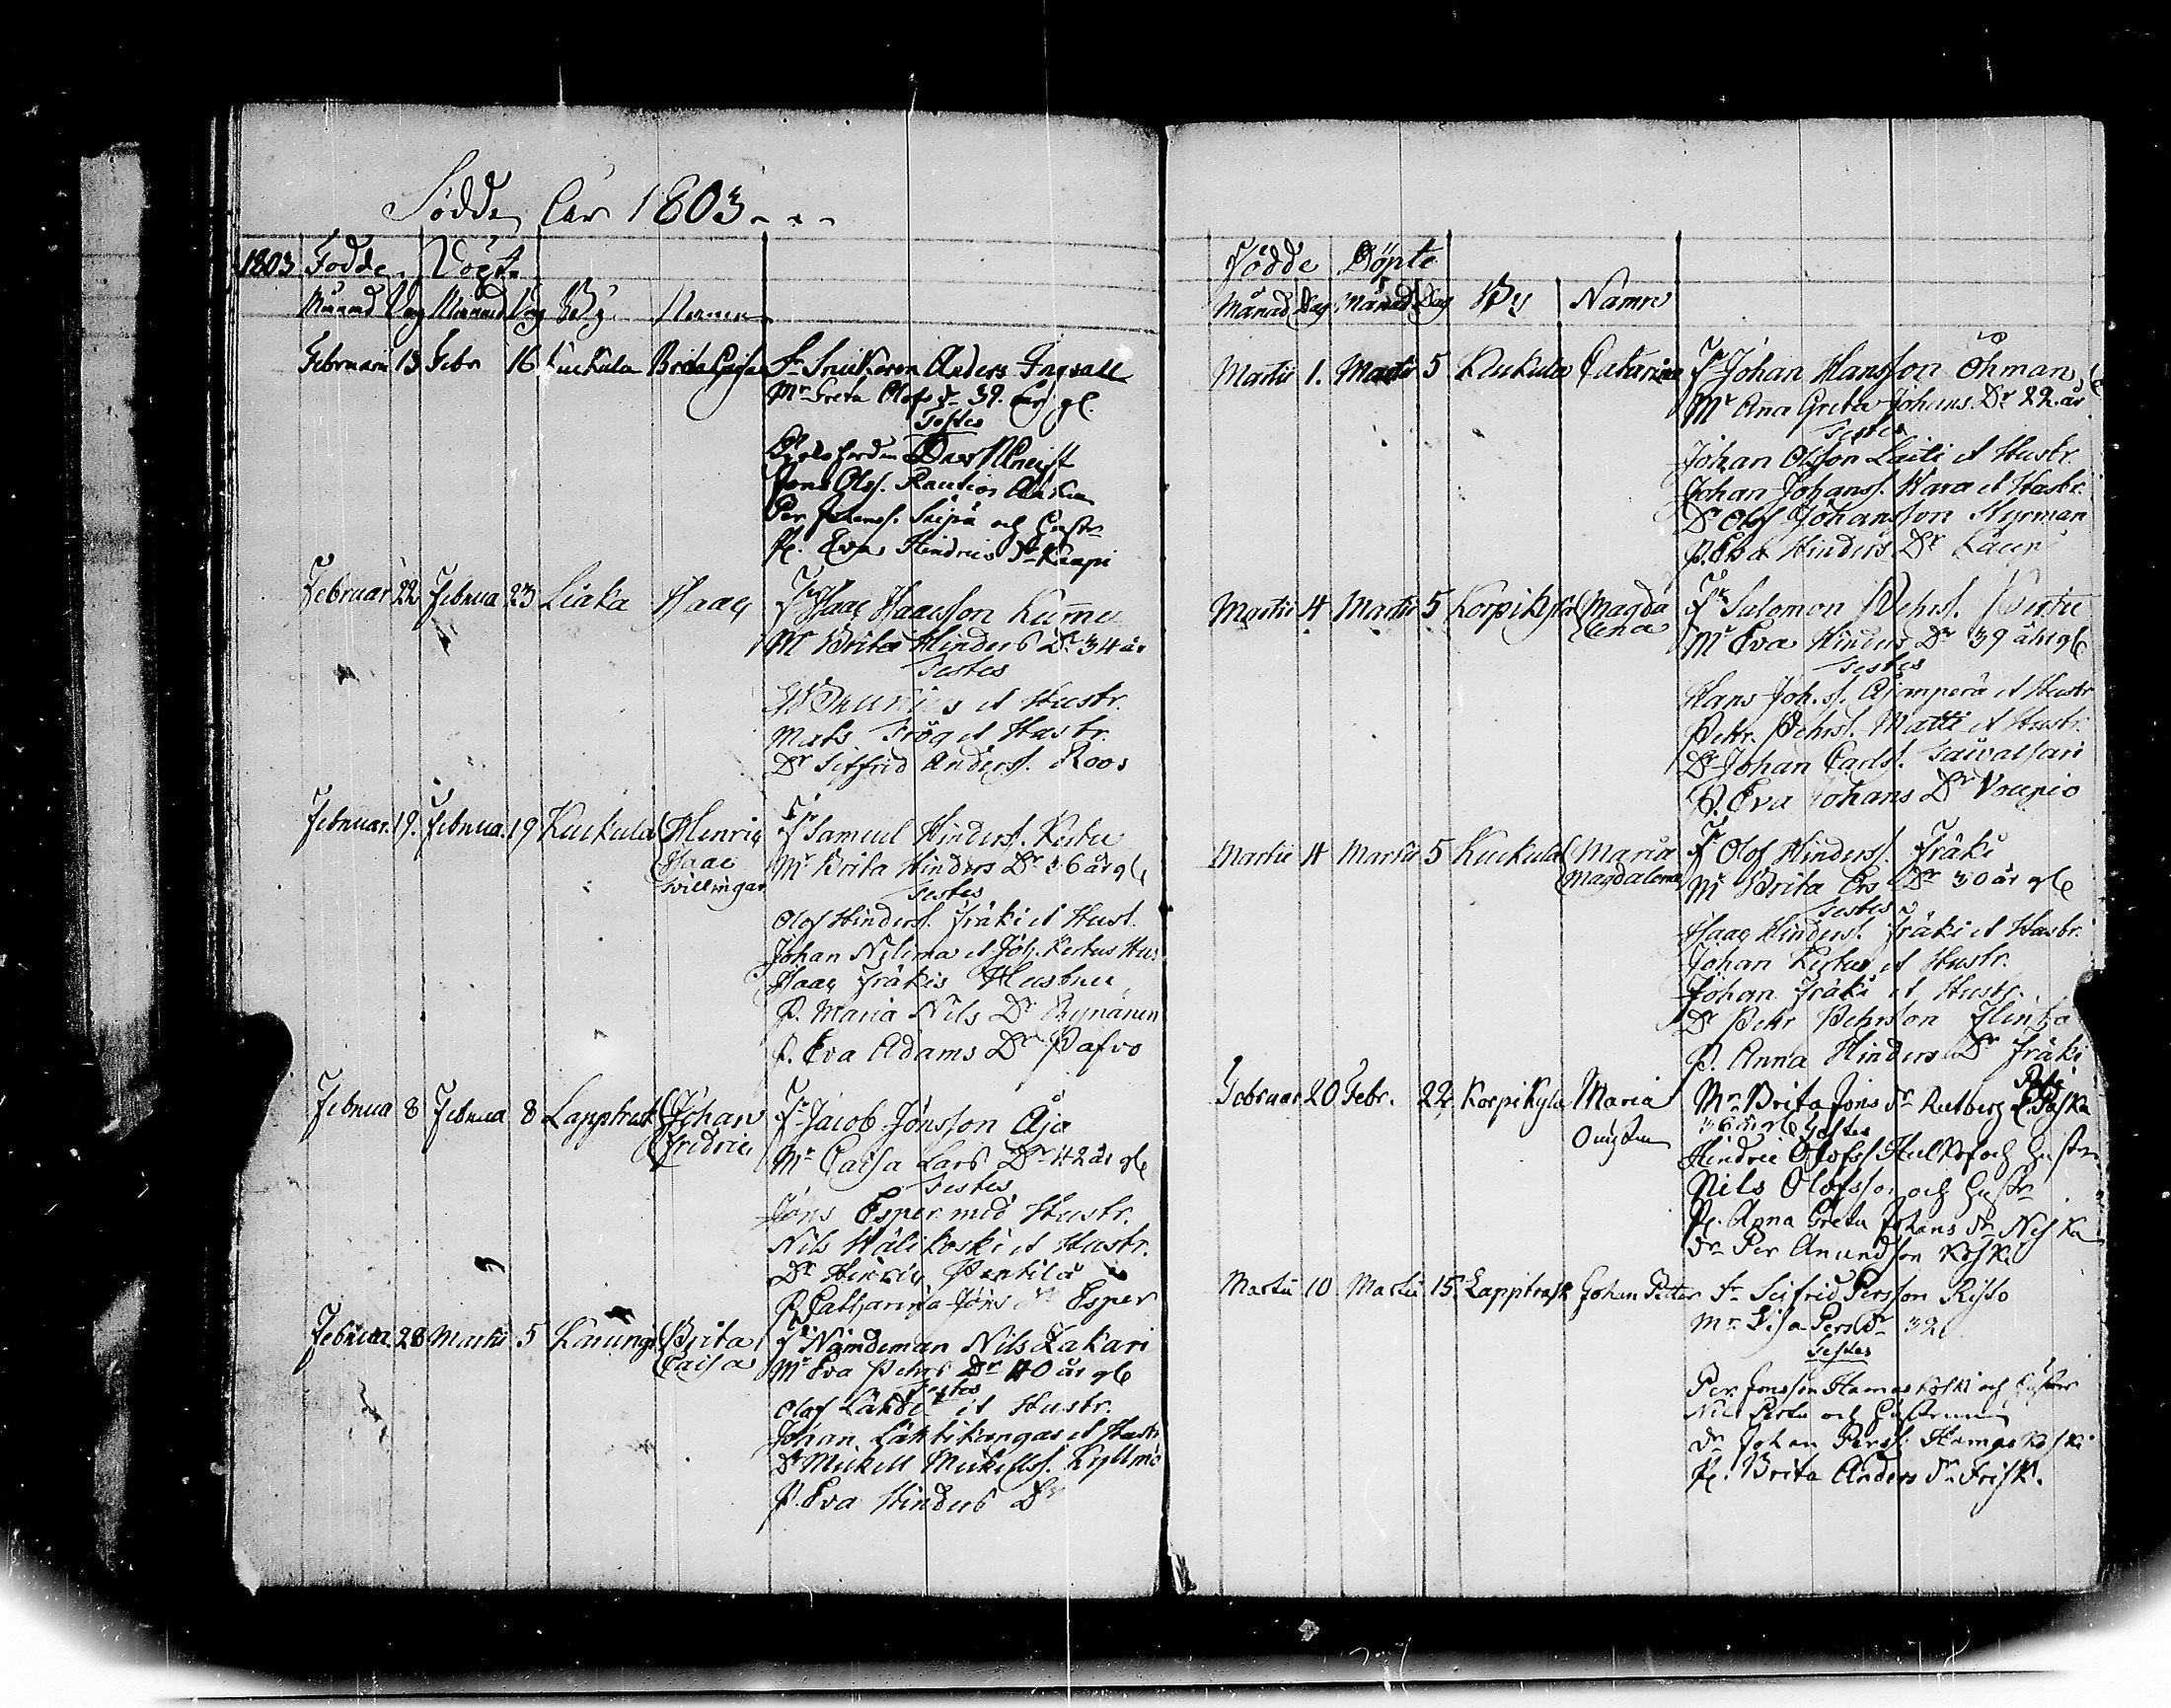 Födde år 1803
1803 Födde Döpte
Månad Dag Månad Dag By Namn
Februari 13 Febr 16 Kuckula Brita Cajsa Fr Snickaren Anders Ingvall
Mr Greta Olofs dr 39. år gl.
Testes
Jöns Olss. Rautios Änka
Per Johanss. Saipa och hustr
P. Eva Hindrics dr Kaupi
Februar 22 Februa 23 Liaka Isaac Fr Isaac Isacsson Kumm
Mr Brita Hinders Dr 34 år
Testes
et Hustr.
Mats Frög et Hustr.
Dr Sigfrid Anderss. Roos
Februar. 19. Februa. 19 Kuckula Henric Fr Samuel Hinderss. Kertu
Isaac Mr Brita Hinders Dr 36 år gl
tvillingar Testes
Olof Hinderss. Fräki et Hust.
Johan Nylima et Joh. Kertus Hus
Isaac Fräkis Hustru
P. Maria Nils Dr Rynänen
P. Eva Adams Dr Pafvo
Februa 8 Februa 8 Lappträsk Johan Fr Jacob Jönsson Äja
Fridric Mr Caisa Lars Dr 42 år gl
Testes
Jöns Esper med Hustr.
Nils Wälikoski et Hustr.
Dr Henric Pentilä
P. Catharina Jöns Dr Esper
Februa. 28 Martii 5 Karungi Brita Fr Nämdeman Nils Lakari
Caisa Mr Eva Pehrs Dr 40 år gl
Testes
Olof Läkdi et Hustr.
Johan Läktikangas et Hustr
Dr Mickell Mickellss. Kyllmä
P. Eva Hinders Dr
Födde Döpte
Månad Dag Månad Dag By Namn
Martii 1. Martii 5 Kuckula Catarina Fr Johan Hansson Öhman
Mr Ana Greta Johans Dr 22 år
Testes
Johan Olsson Laiti et Hustr.
Johan Johanss. Wara et Hustr.
Dr Olof Johansson Nyman
P. Eva Hinders Dr
Martii 4 Martii 5 Korpikylä Magda Fr Salomon Pehrs. Kertu
lena Mr Eva Hinders Dr 39 år gl
Testes
Hans Joh.s. Äjmperä et Hustr
Petr. Pehrs. Matti et Hustr.
Dr Johan Carlss. Taivalsari
P. Eva Johans Dr Voupio
Martii 4 Martii 5 Kuckula Maria Fr Olof Hinderss. Fräki
Magdalena Mr Brita Ers Dr 30 år gl
Testes
Isaac Hinderss. Fräki et Hustr.
Johan Kertus et Hustr.
Johan Fräki et Hustr.
Dr Petr Pehrsson Flinko
P. Anna Hinders Dr Fräki
Februar 20 Febr. 22 Korpikylä Maria Mr Brita Jöns dr Rutberg
36 år gl Testes
Hindric Olofss Hulkof och hustr
Nils Olofsson och hustr
P. Anna Greta Johans dr Niska
Dr Per Anundsson Koski
Martii 10 Martii 15 Lappträsk Johan Petter Fr Seifrid Persson Risto
Mr Lisa Pers dr 32
Testes
Per Jonsson Hamaskoski och hustru
Nils Perta och hustrun
Dr Johan Perss. Hamaskoski
P. Brita Anders dr Frisk.